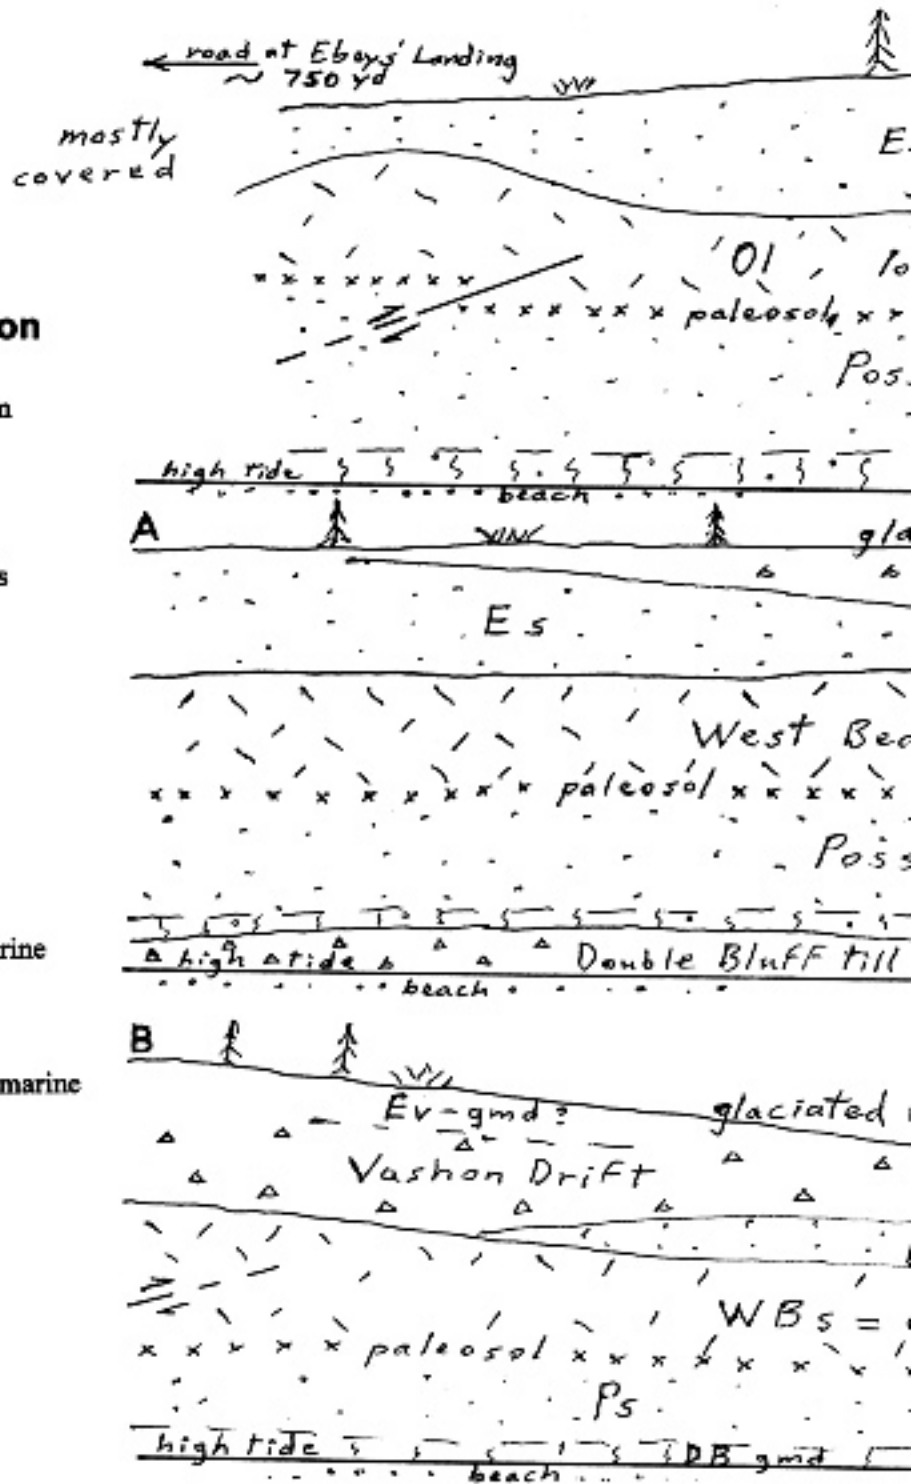 road at Ebeys' Landing
~ 750 yd
mostly
covered
E
Ol lo
on
paleosol
Pos
n
high tide
beach
A
gla
s
Es
West Bea
paleosol
Poss
rine
high tide Double Bluff till
beach
B
marine
Ev-gmd?
glaciated
Vashon Drift
WBs =
paleosol
Ps
high tide DB gmd
beach